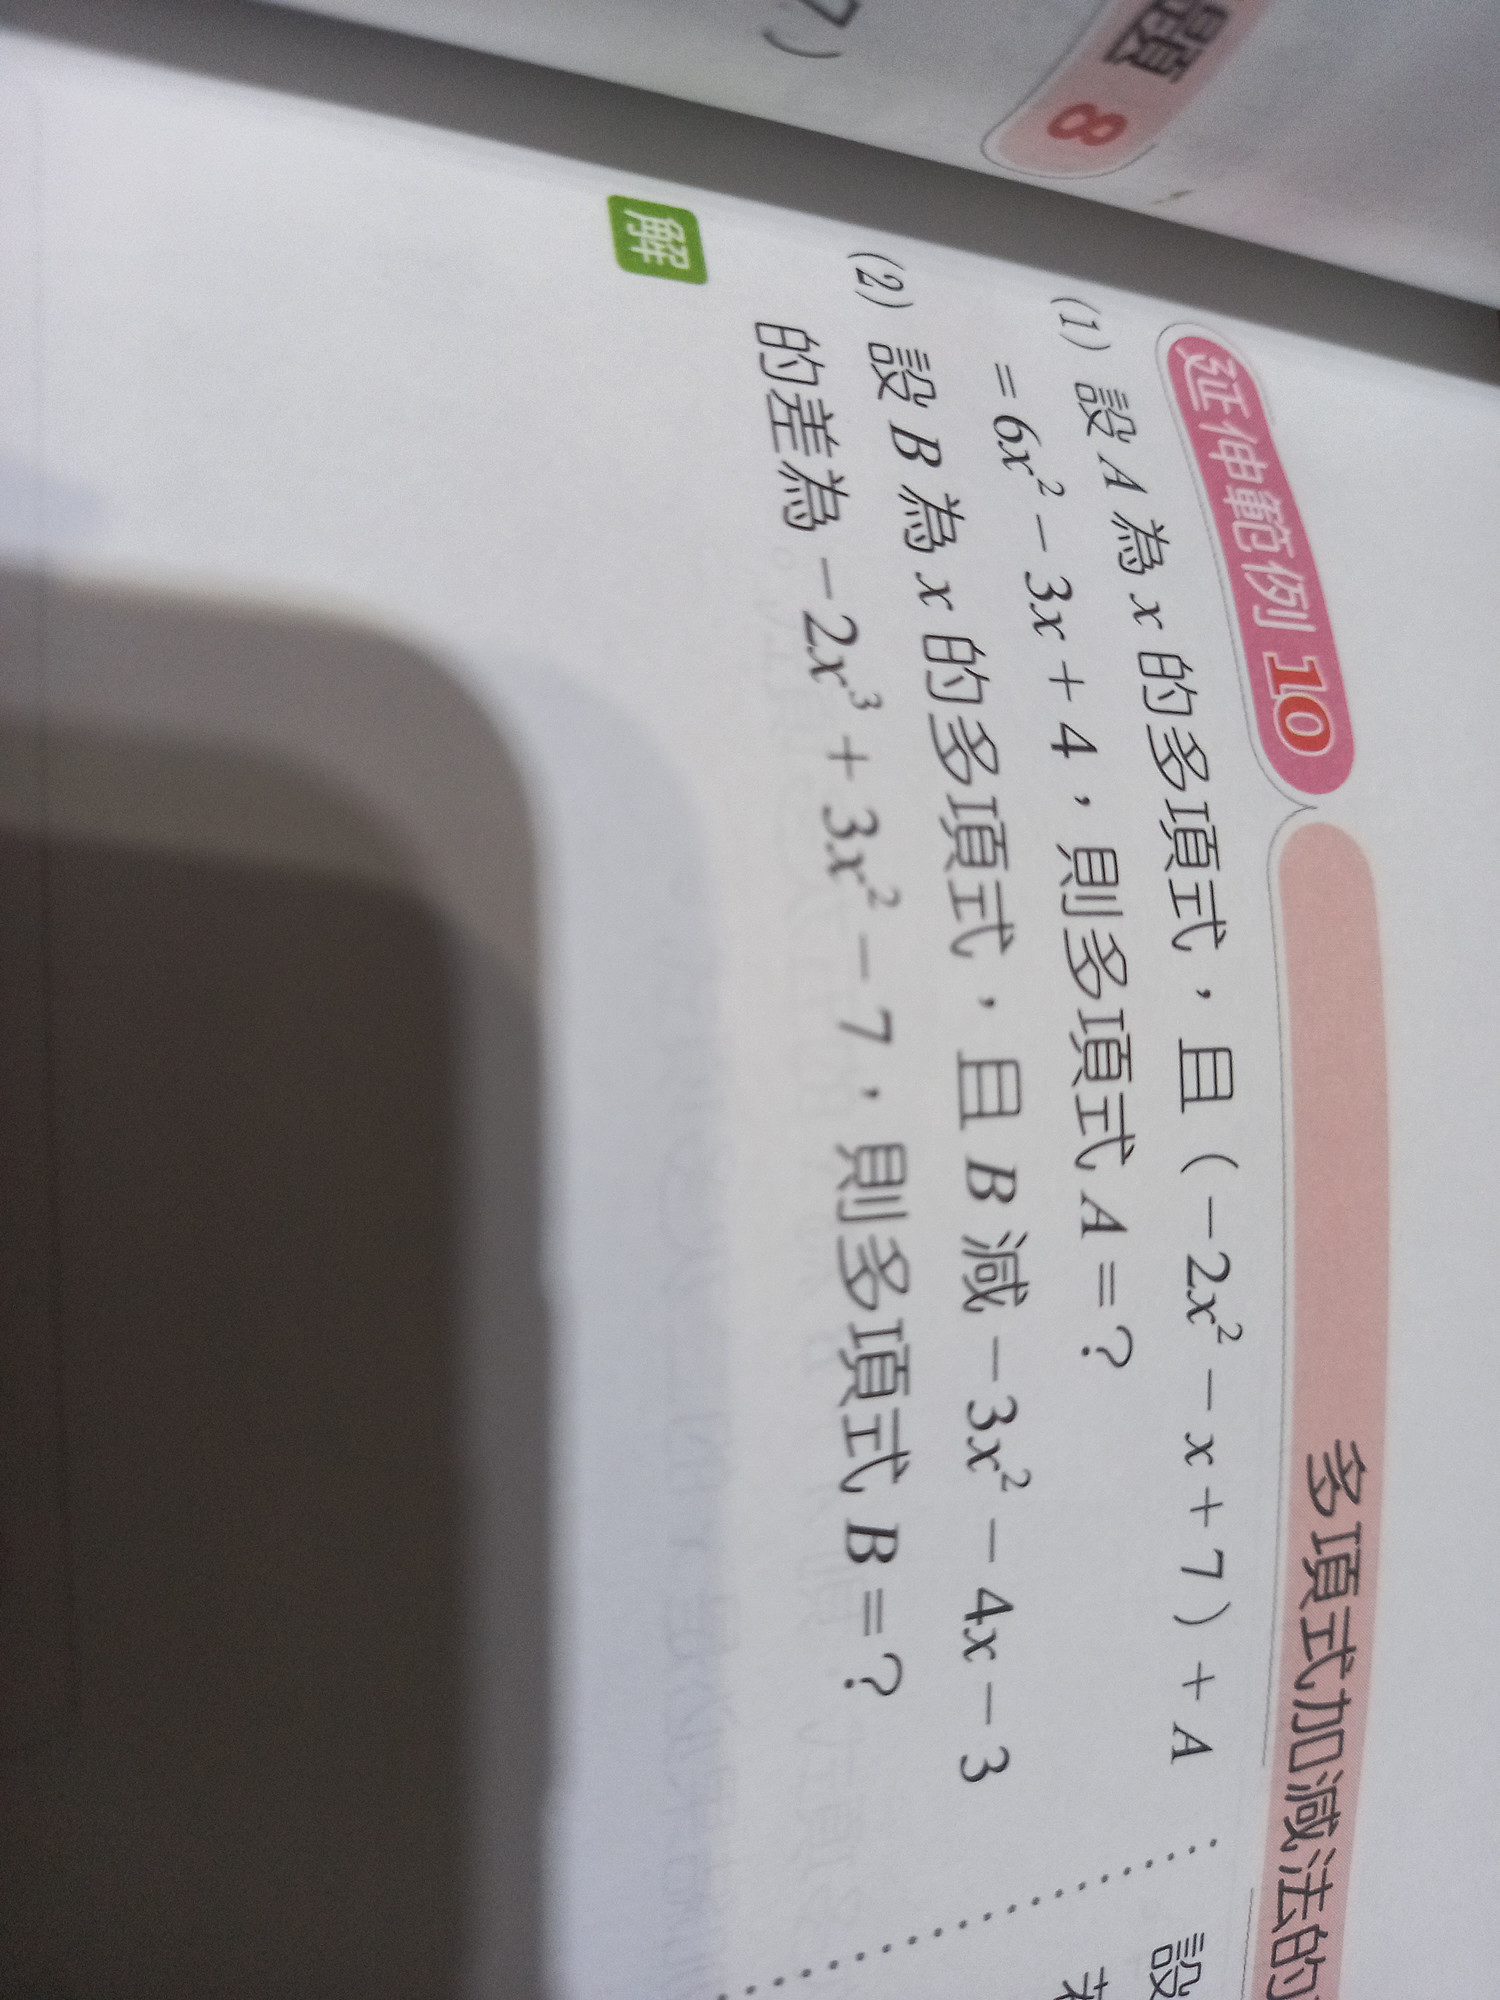 題 8
7)
延伸範例 10 多項式加減法的
(1) 設 A 為 x 的多項式，且 (-2x² - x + 7) + A
= 6x² - 3x + 4，則多項式 A = ?
(2) 設 B 為 x 的多項式，且 B 減 -3x² - 4x - 3
的差為 -2x³ + 3x² - 7，則多項式 B = ?
解
設